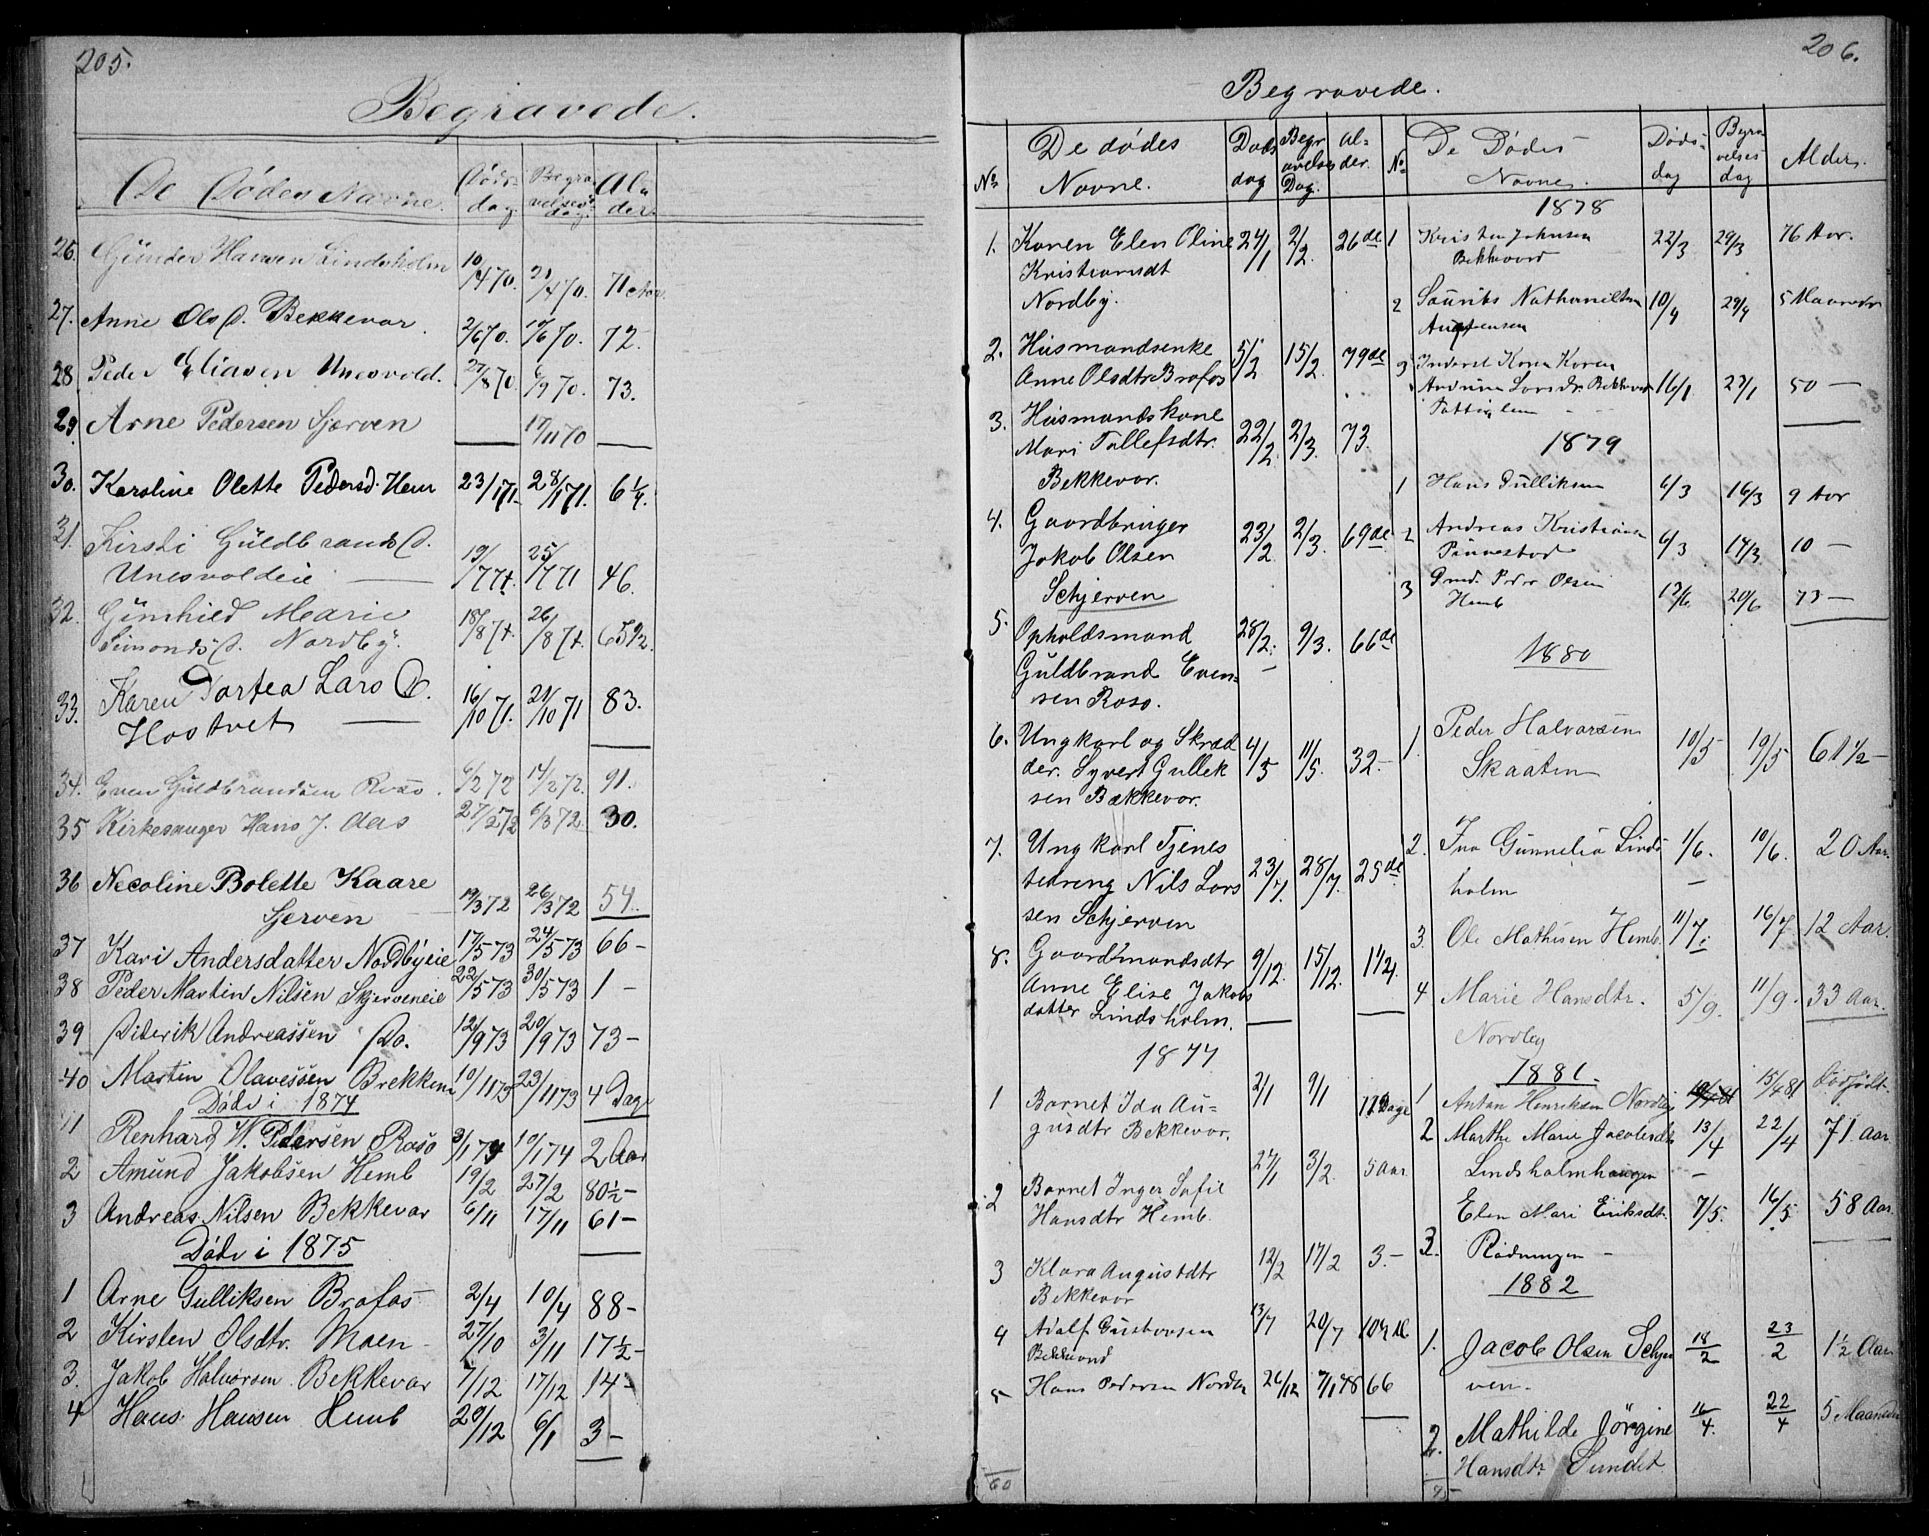 205.
Begravede.
De Dødes Navne. Døds- dag Begra- velses- dag. Al- der.
26. Gunder Hansen Lindsholm 10/4 70. 21/4 70. 71 Aar
27. Anne Ols D. Bekkevar. 2/6 70. 10/6 70. 72.
28 Peder Eliasen Unesvold. 27/8 70. 6/9 70. 73.
29. Arne Pedersen Sjerven — 17/11 70 —
30. Karoline Olette Pedersd. Hem 23/1 71. 28/1 71. 6 1/4.
31. Kirsti Guldbrands D.
Unesvoldeie — 19/7 71. 25/7 71 46.
32. Gunhild Marie
Simonds D. Nordby. 18/8 71. 26/8 71. 65 1/2.
33. Karen Dortea Lars D.
Hostvet — 16/10 71. 21/10 71 83.
34. Even Guldbrandsen Roso. 6/2 72 14/2 72. 91.
35 Kirkesanger Hans J. Aas 27/2 72 6/3 72. 30.
36 Necoline Bolette Kaare
Sjerven 19/3 72 26/3 72 54.
37 Kari Andersdatter Nordbyeie 17/5 73 24/5 73 66 –
38 Peder Martin Nilsen Skjerveneie 22/5 73 30/5 73 1 –
39 Diderik Andreassen Do. 12/9 73 20/9 73 73 –
40 Martin Olavessen Brekken 10/11 73 23/11 73 4 Dage
Døde i 1874
1 Renhard W. Pedersen Roso 3/1 74 10/1 74 2 Aar
2 Amund Jakobsen Hemb 19/2 27/2 80½ –
3 Andreas Nilsen Bekkevar 6/11 17/11 61 –
Døde i 1875
1 Arne Gulliksen Brofos 2/4 10/4 88 –
2 Kirsten Olsdtr. Moen 27/10 3/11 17½ –
3. Jakob Halvorsen Bekkevar 7/12 17/12 14 –
4 Hans Hansen Hemb 20/12 6/1 3 –
206.
Begravede.
No De dødes Navne. Døds dag Begr avelses Dag. Al- der.
1. Karen Elen Oline 24/1 2/2. 26 de
Kristiansdt
Nordby.
2. Husmandsenke 5/2 15/2. 79 de
Anne Olsdtr Brofos
3. Husmandskone
Mari Tollefsdtr. 22/2. 2/3. 73.
Bekkevar.
4. Gaardbruger
Jakob Olsen 23/2. 2/3. 69 de
Schjerven
5. Opholdsmand 28/2. 9/3. 66 de
Guldbrand Even-
sen Roso.
6. Ungkarl og Skræd
der. Syvert Gullek 4/5 11/5. 32 –
sen Bækkevar.
7. Ungkarl Tjenes
tedreng Nils Lars 23/7. 28/7. 25 de
sen Schjerven
8. Gaardmandsdtr 9/12. 15/12. 1½.
Anne Elise Jakobs
datter Lindsholm.
1877
1 Barnet Ida Au- 2/1 9/1 Dage
gusdtr Bekkevar.
2 Barnet Inger Sofie 27/1 3/2. 5 Aar
Hansdtr Hemb.
3 Klara Augustdtr 12/2 17/2 3. –
Bekkevar
4 Adolf Gustavsen 13/7 20/7
5 Hans Pedersen Nordby 26/12 7/1 78 66
60
No De Dødes Navne. Døds- dag velses dag Alder.
1878
1 Kristen Johnsen 22/3 29/3 76 Aar.
2 Nathanielsen 10/4 29/4 5 Maaneder
3 Karen Karen
Larsdr. Bekkevar 16/1 23/1 50 –
1879
1 Hans Gulliksen 6/3 16/3 9 Aar
2 Andreas Kristians
6/3 14/3 10 –
3 Peder Olsen
Hemb 12/6. 20/6 73 –
1880
1. Peder Halvorsen
Skaaten 10/5 19/5 61½ –
2. Ina Gunnelia Linds 1/6. 10/6. 20 Aar.
holm
3. Ole Mathisen Hemb. 11/7. 16/7 12 Aar.
4 Marie Hansdtr. 5/9. 11/9. 33 Aar.
Nordby
1881.
1 Anton Henriksen Nordby 15/4 81 Dødfødt
2 Marthe Marie Jacobsdtr 13/4 22/4 71 Aar
Lindsholmhaugen –
3. Elen Mari Eriksdtr. 7/5. 16/5 58 Aar
Rødningen –
1882
1. Jacob Olsen Schjer 18/2 23/2 1½ Aar
ven.
2. Mathilde Jörgine 16/4. 22/4 5 Maaneder
Hansdtr Sundet